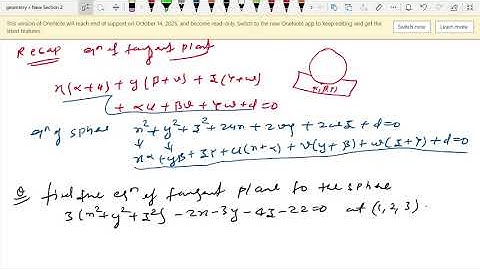 geometry » New Section 2
This version of OneNote will reach end of support on October 14, 2025, and become read-only. Switch to the new OneNote app to keep editing and get the latest features.
Switch now
Learn more
Recap eqn of tangent plant
x(α+u) + y(β+v) + z(γ+w)
+ αu + βv + γw + d = 0
(α,β,γ)
eqn of sphere x²+y²+z²+2ux+2vy+2wz+d=0
xα+yβ+zγ+u(x+α)+v(y+β)+w(z+γ)+d=0
Q find the eqn of tangent plane to the sphere
3(x²+y²+z²) -2x-3y-4z-22=0 at (1,2,3).